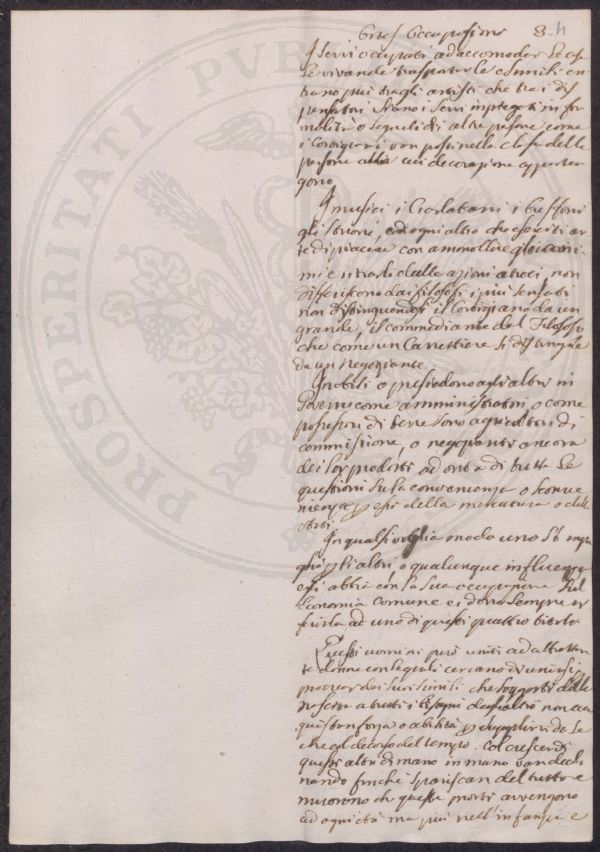 8. 4
I servi occupati ad accomodar le case
le vivande trasportar le
trano più tragli artisti che tra i dis
pensatori. Se no i servi impiegati in for
malità o segueli di altre persone come
i Cortigiani van posti nelle classe delle
persone alla cui decorazione apparten
gono
I musici i Ciarlatani i buffoni
gli Istrioni, ed ogni altro che eserciti ar
te di piacere con ammollire gli ani
mi e ritrarli dalle azioni atroci, non
differiscono dai filosofi i più sensati
non distinguendosi il Cortigiano da un
grande, il commediante dal Filosofo
che come un Carrettiere si distingue
da un Negoziante.
I nobili o presiedono agli altri in
Governo come amministratori, o come
possessori di terre sono agricoltori di
commissione, o negozianti ancora
dei lor prodotti ad onta di tutte le
questioni su la convenienza o sconve
nienza essi della mercatura o delle
arti.
In qualsivoglia modo uno s'im
gli altri, o qualunque influenza
essi abbia con la sua occupazione sul
Economia comune ei dovrà sempre re
ferirla ad uno di questi quattro
Questi uomini però uniti ad altrettan
te donne con le quali cercano di unirsi
procrear dei lor simili che soggetti dalla
nascita a tutti i bisogni degli altri non ac
quistan forza o abilità supplirvi da se
che col decorso del tempo. Col crescer di
questi altri di mano in mano van decli
nando finchè spariscan del tutto e
muorono che queste morti avvengono
ad ogni età ma più nell'infanzia e
PROSPERITATI PVB